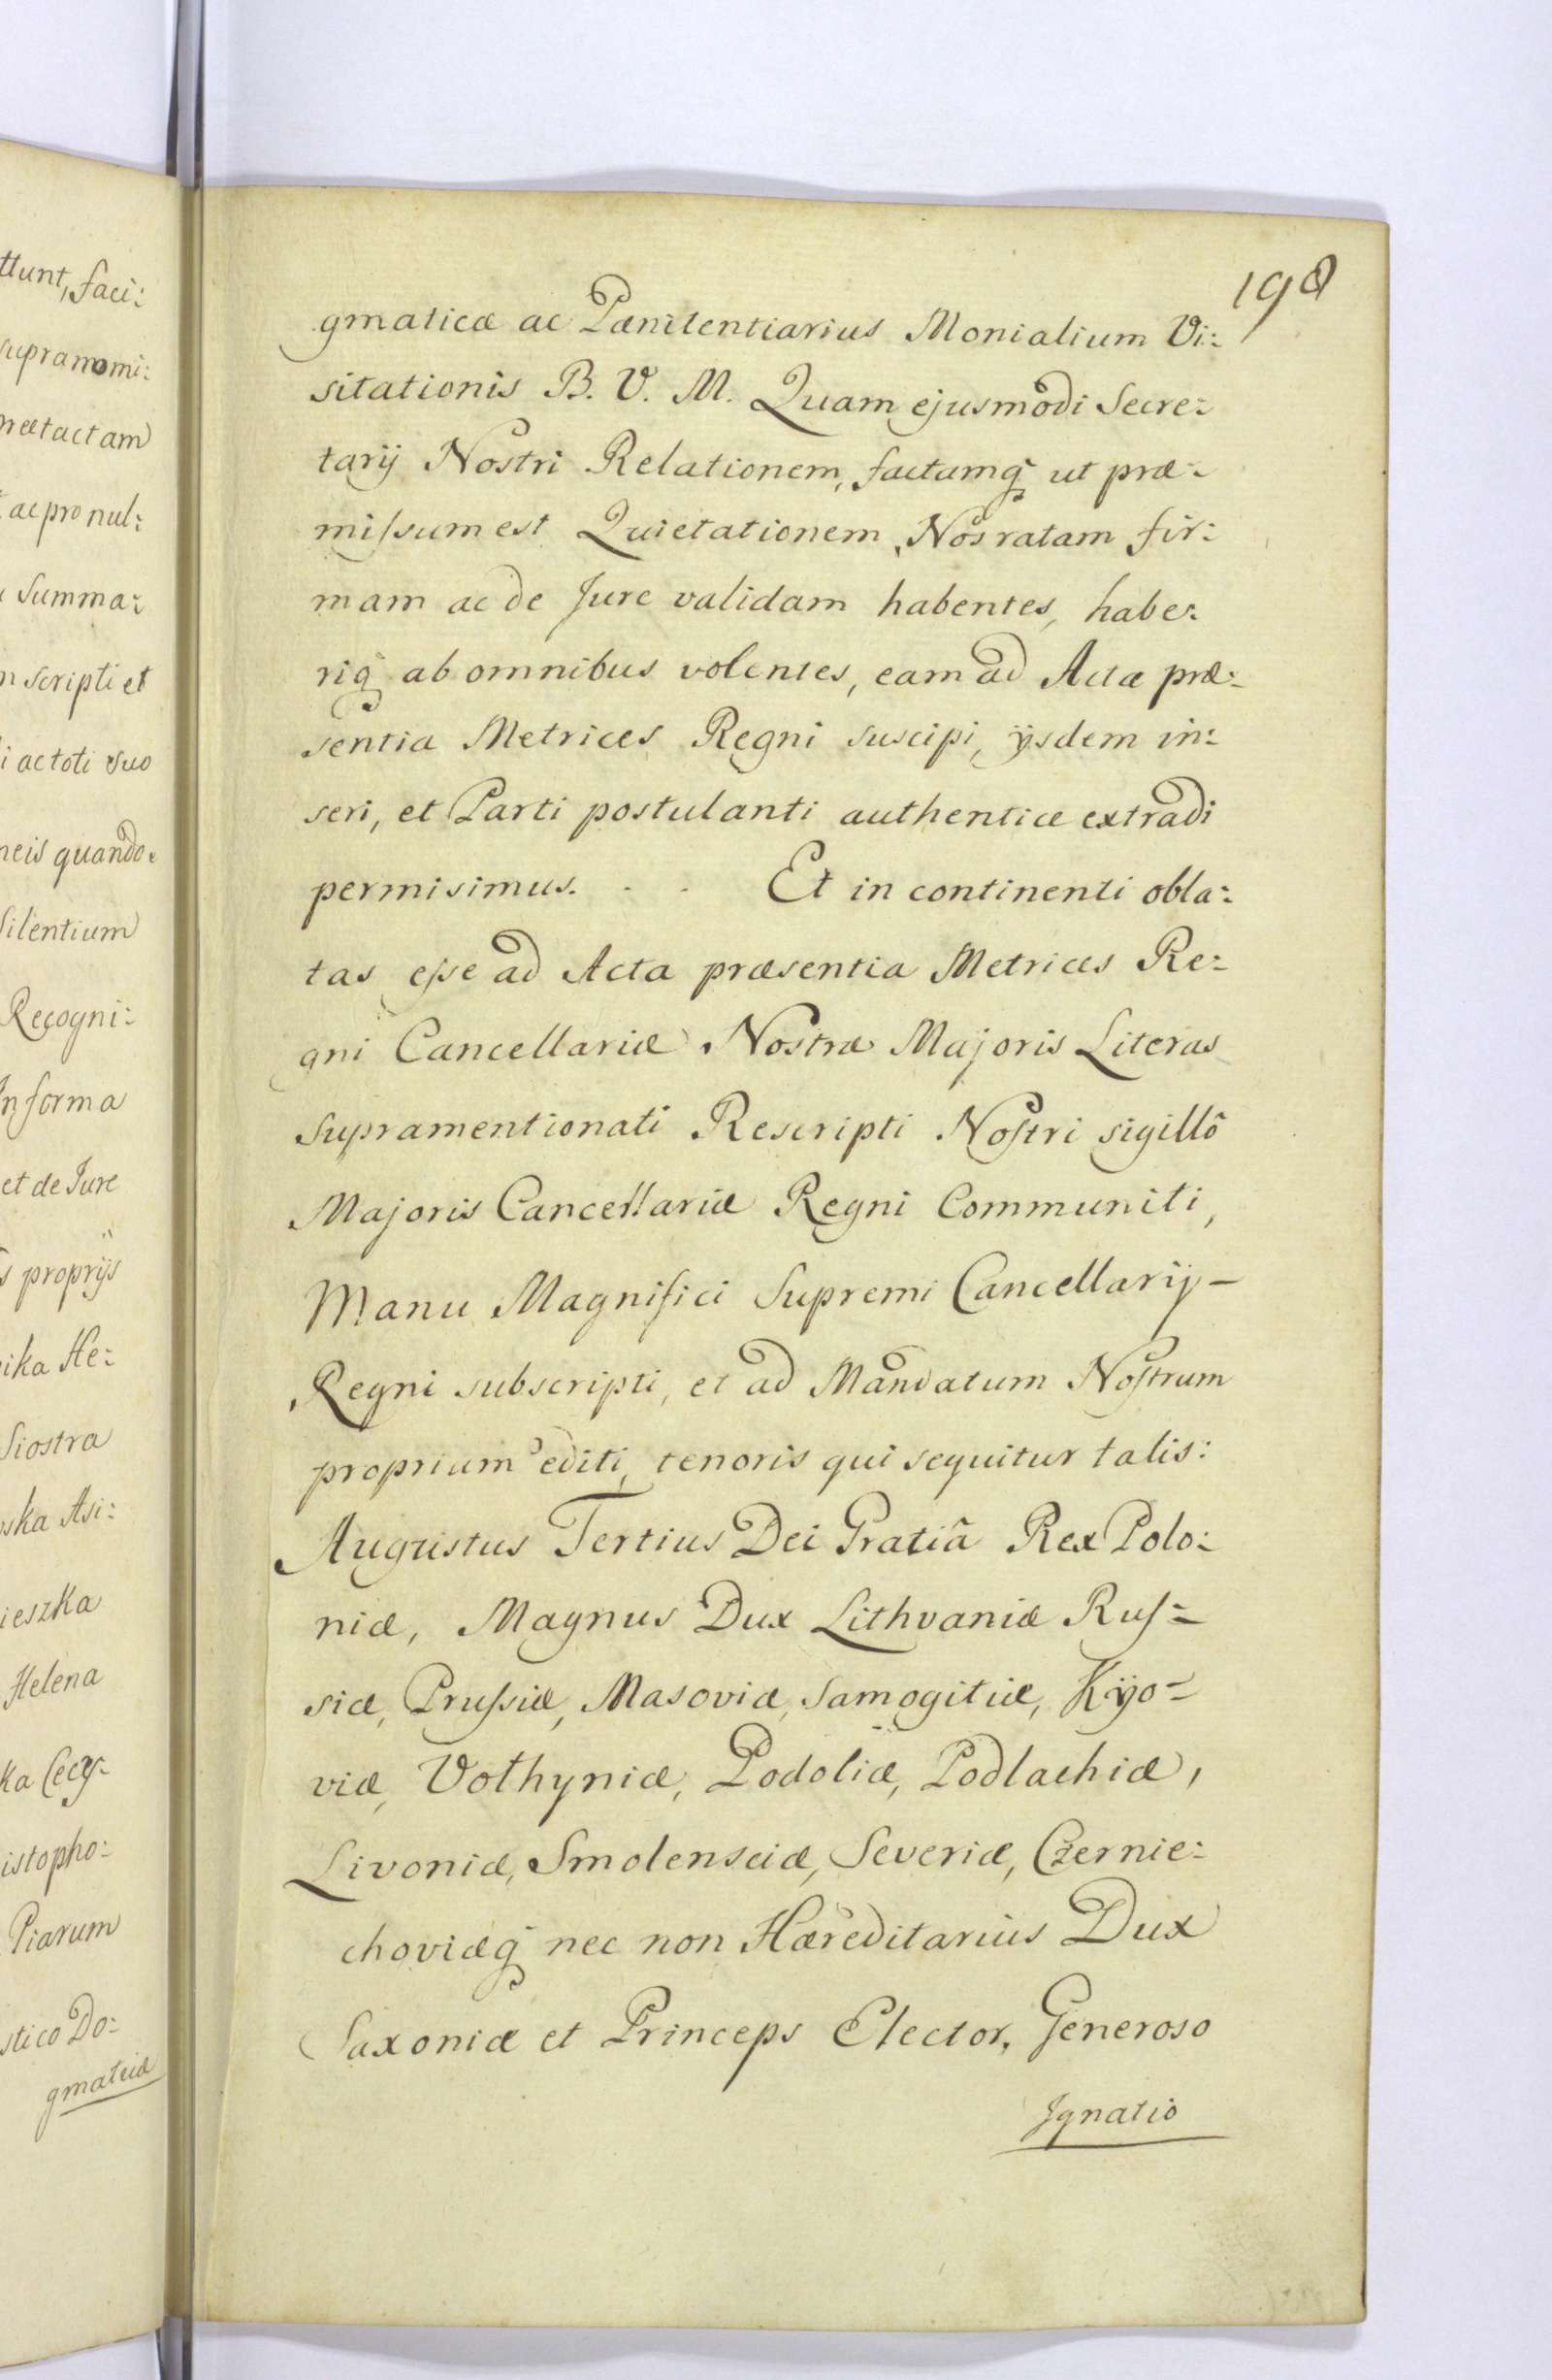 ttunt, faci:
supranomi:
rætactam
ac pro nul:
Summa:
scripti et
i ac toti suo
neis quando:
Silentium
Recogni:
In forma
et de Jure
proprijs
ika He:
Siostra
ska Asi:
ieszka
Helena
ka Cecy:
istopho:
Piarum
stico Do:
gmaticæ
198
gmaticæ ac Pænitentiarius Monialium Vi:
sitationis B. V. M. Quam ejusmodi Secre:
tarij Nostri Relationem, factamq ut præ:
miſsum est Quietationem, Nos ratam fir:
mam ac de Jure validam habentes, habe:
riq ab omnibus volentes, eam ad Acta præ:
sentia Metrices Regni suscipi, ijsdem in:
seri, et Parti postulanti authentice extradi
permisimus. - - Et in continenti obla:
tas eſse ad Acta præsentia Metrices Re:
gni Cancellariæ Nostræ Majoris Literas
supramentionati Rescripti Noſtri sigillô
Majoris Cancellariæ Regni Communiti,
Manu Magnifici Supremi Cancellarij -
Regni subscripti, et ad Mandatum Noſtrum
proprium editi, tenoris qui sequitur talis:
Augustus Tertius Dei Gratiâ Rex Polo:
niæ, Magnus Dux Lithvaniæ Ruſ:
siæ, Pruſsiæ, Masoviæ, Samogitiæ, Kijo:
viæ, Volhyniæ, Podoliæ, Podlachiæ,
Livoniæ, Smolensciæ, Severiæ, Czernie:
choviæq nec non Hæreditarius Dux
Saxoniæ et Princeps Elector, Generoso
Ignatio